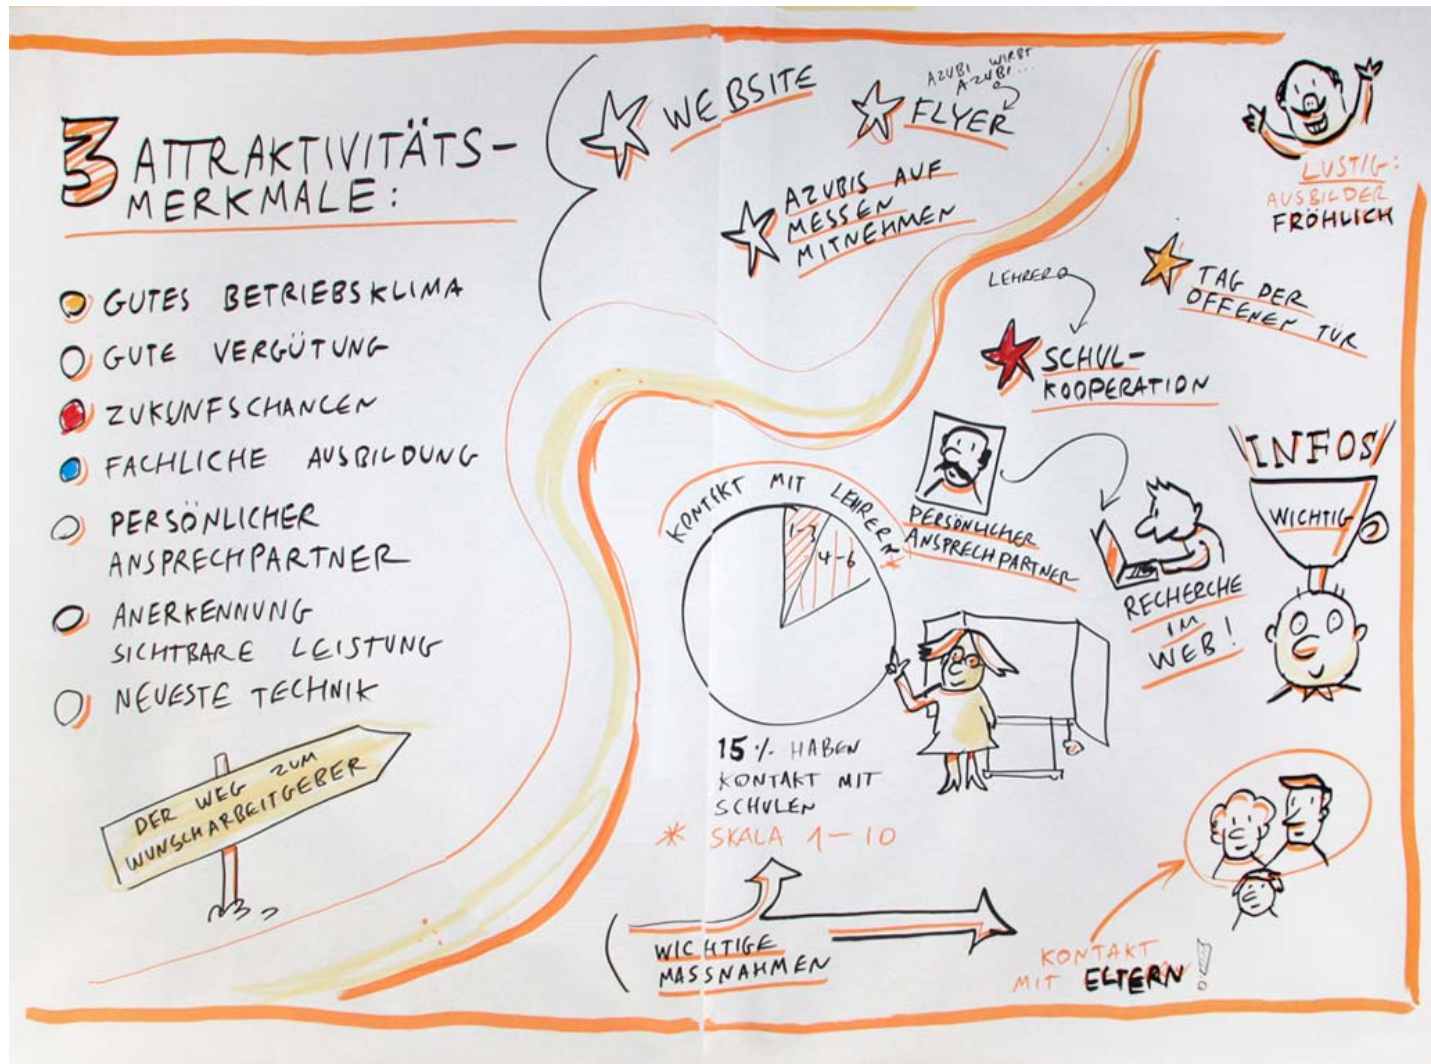 3 ATTRAKTIVITÄTS-
MERKMALE:
GUTES BETRIEBSKLIMA
GUTE VERGÜTUNG
ZUKUNFSCHANCEN
FACHLICHE AUSBILDUNG
PERSÖNLICHER
ANSPRECHPARTNER
ANERKENNUNG
SICHTBARE LEISTUNG
NEUESTE TECHNIK
DER WEG ZUM
WUNSCHARBEITGEBER
WEBSITE
AZUBI WIRBT
AZUBI...
FLYER
AZUBIS AUF
MESSEN
MITNEHMEN
LUSTIG:
AUSBILDER
FRÖHLICH
TAG DER
OFFENEN TÜR
LEHRER
SCHUL-
KOOPERATION
PERSÖNLICHER
ANSPRECHPARTNER
RECHERCHE
IM
WEB!
INFOS
WICHTIG
KONTAKT MIT LEHRERN *
1-3
4-6
15% HABEN
KONTAKT MIT
SCHULEN
* SKALA 1-10
WICHTIGE
MASSNAHMEN
KONTAKT
MIT ELTERN!